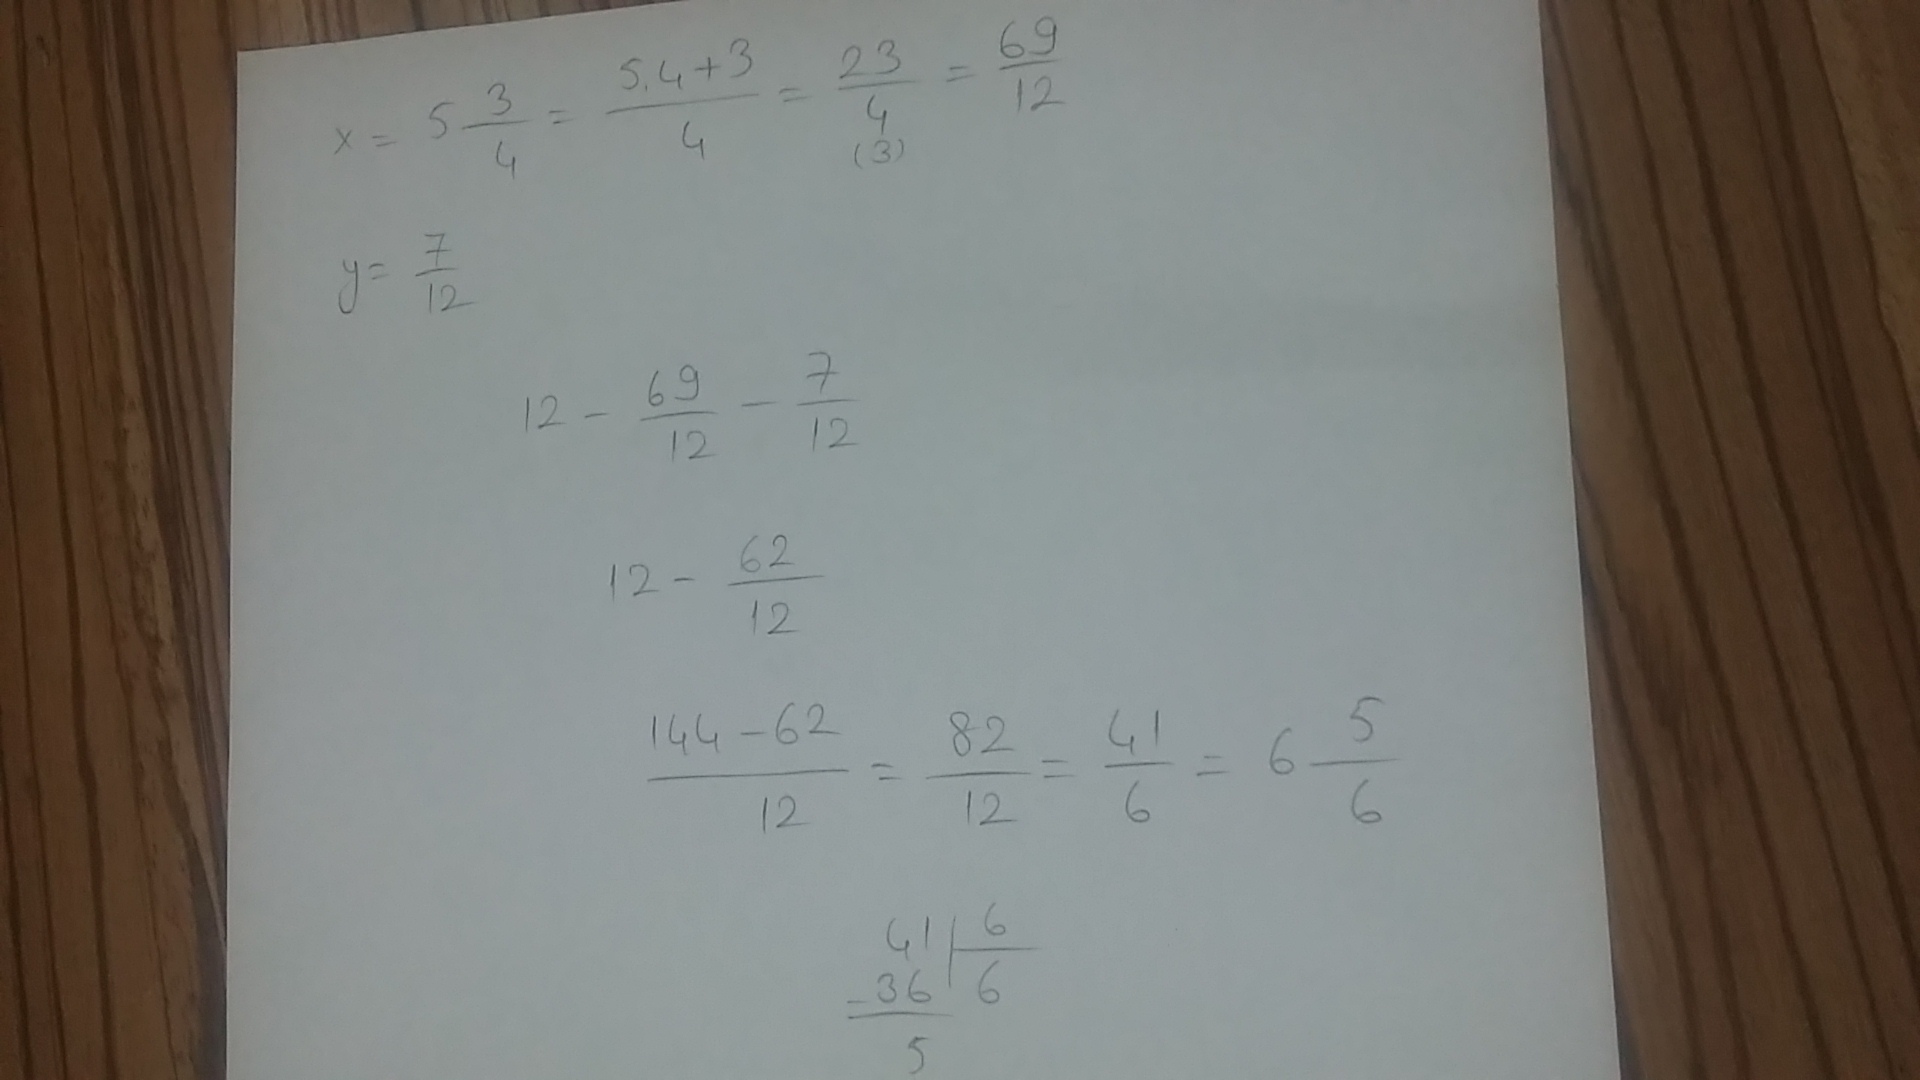 x = 5 3/4 = 5.4+3/4 = 23/4 (3) = 69/12
y = 7/12
12 - 69/12 - 7/12
12 - 62/12
144-62/12 = 82/12 = 41/6 = 6 5/6
41 | 6
-36 | 6
5